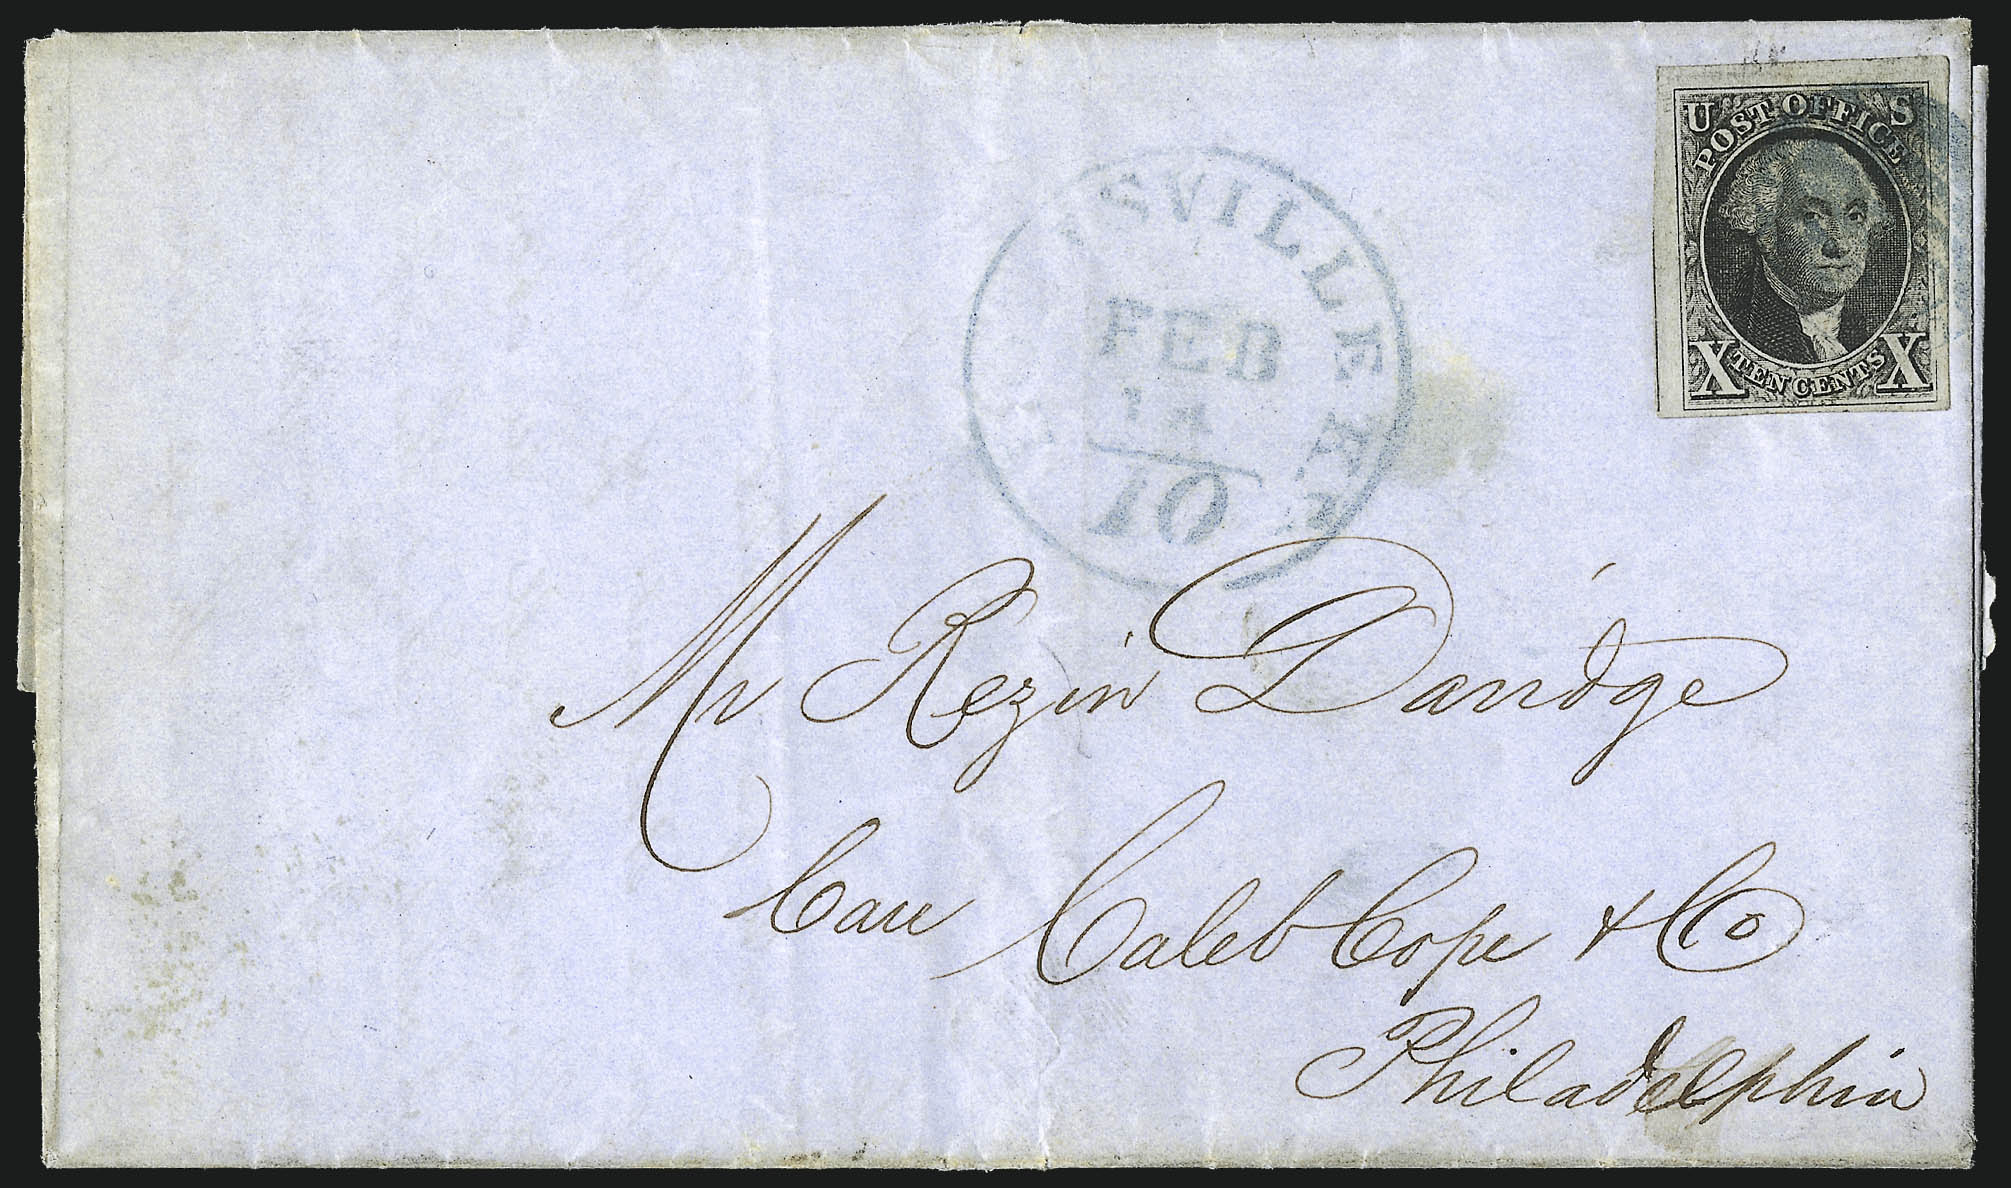 U S
POST OFFICE
X TEN CENTS X
SVILLE KY
FEB
14
10
Mr Rezin Davidge
Care Caleb Cope & Co
Philadelphia